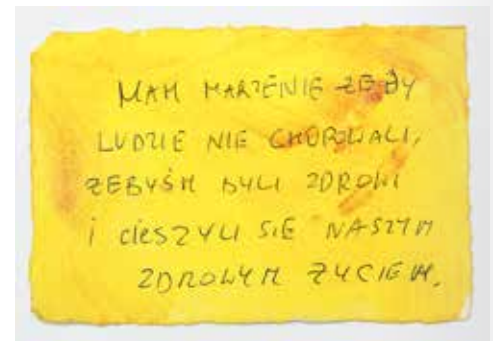 MAM MARZENIE ŻEBY
LUDZIE NIE CHOROWALI,
ŻEBYŚM BYLI ZDROWI
i CIESZYLI SIĘ NASZYM
ZDROWYM ŻYCIEM.